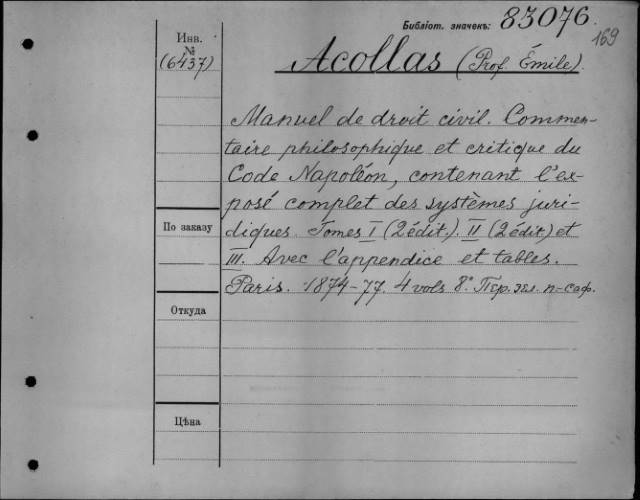 Библіот. значекъ: 83076.
169
Инв.
№
(6437)
Acollas (Prof. Émile).
Manuel de droit civil. Commen-
taire philosophique et critique du
Code Napoléon, contenant l'ex-
posé complet des systèmes juri-
diques. Tomes I (2 édit.). II (2 édit.) et
III. Avec l'appendice et tables.
Paris. 1874-77. 4 vols 8°. Пер. зел. п-саф.
По заказу
Откуда
Цѣна